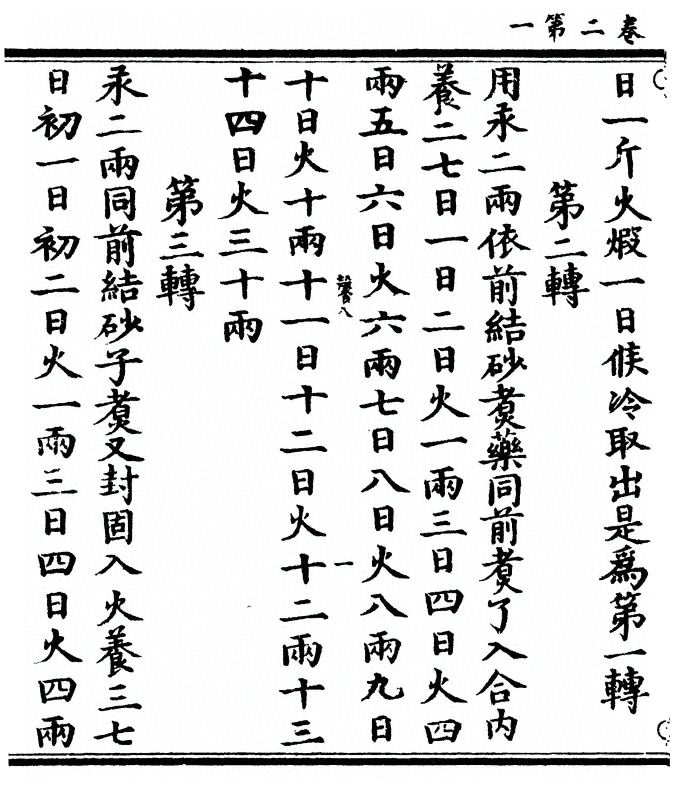 卷二第一
日一斤火煆一日候冷取出是爲第一轉
第二轉
用汞二兩依前結砂煑藥同前煑了入合内
養二七日一日二日火一兩三日四日火四
兩五日六日火六兩七日八日火八兩九日
八 一
十日火十兩十一日十二日火十二兩十三
十四日火三十兩
第三轉
汞二兩同前結砂子煑又封固入火養三七
日初一日初二日火一兩三日四日火四兩